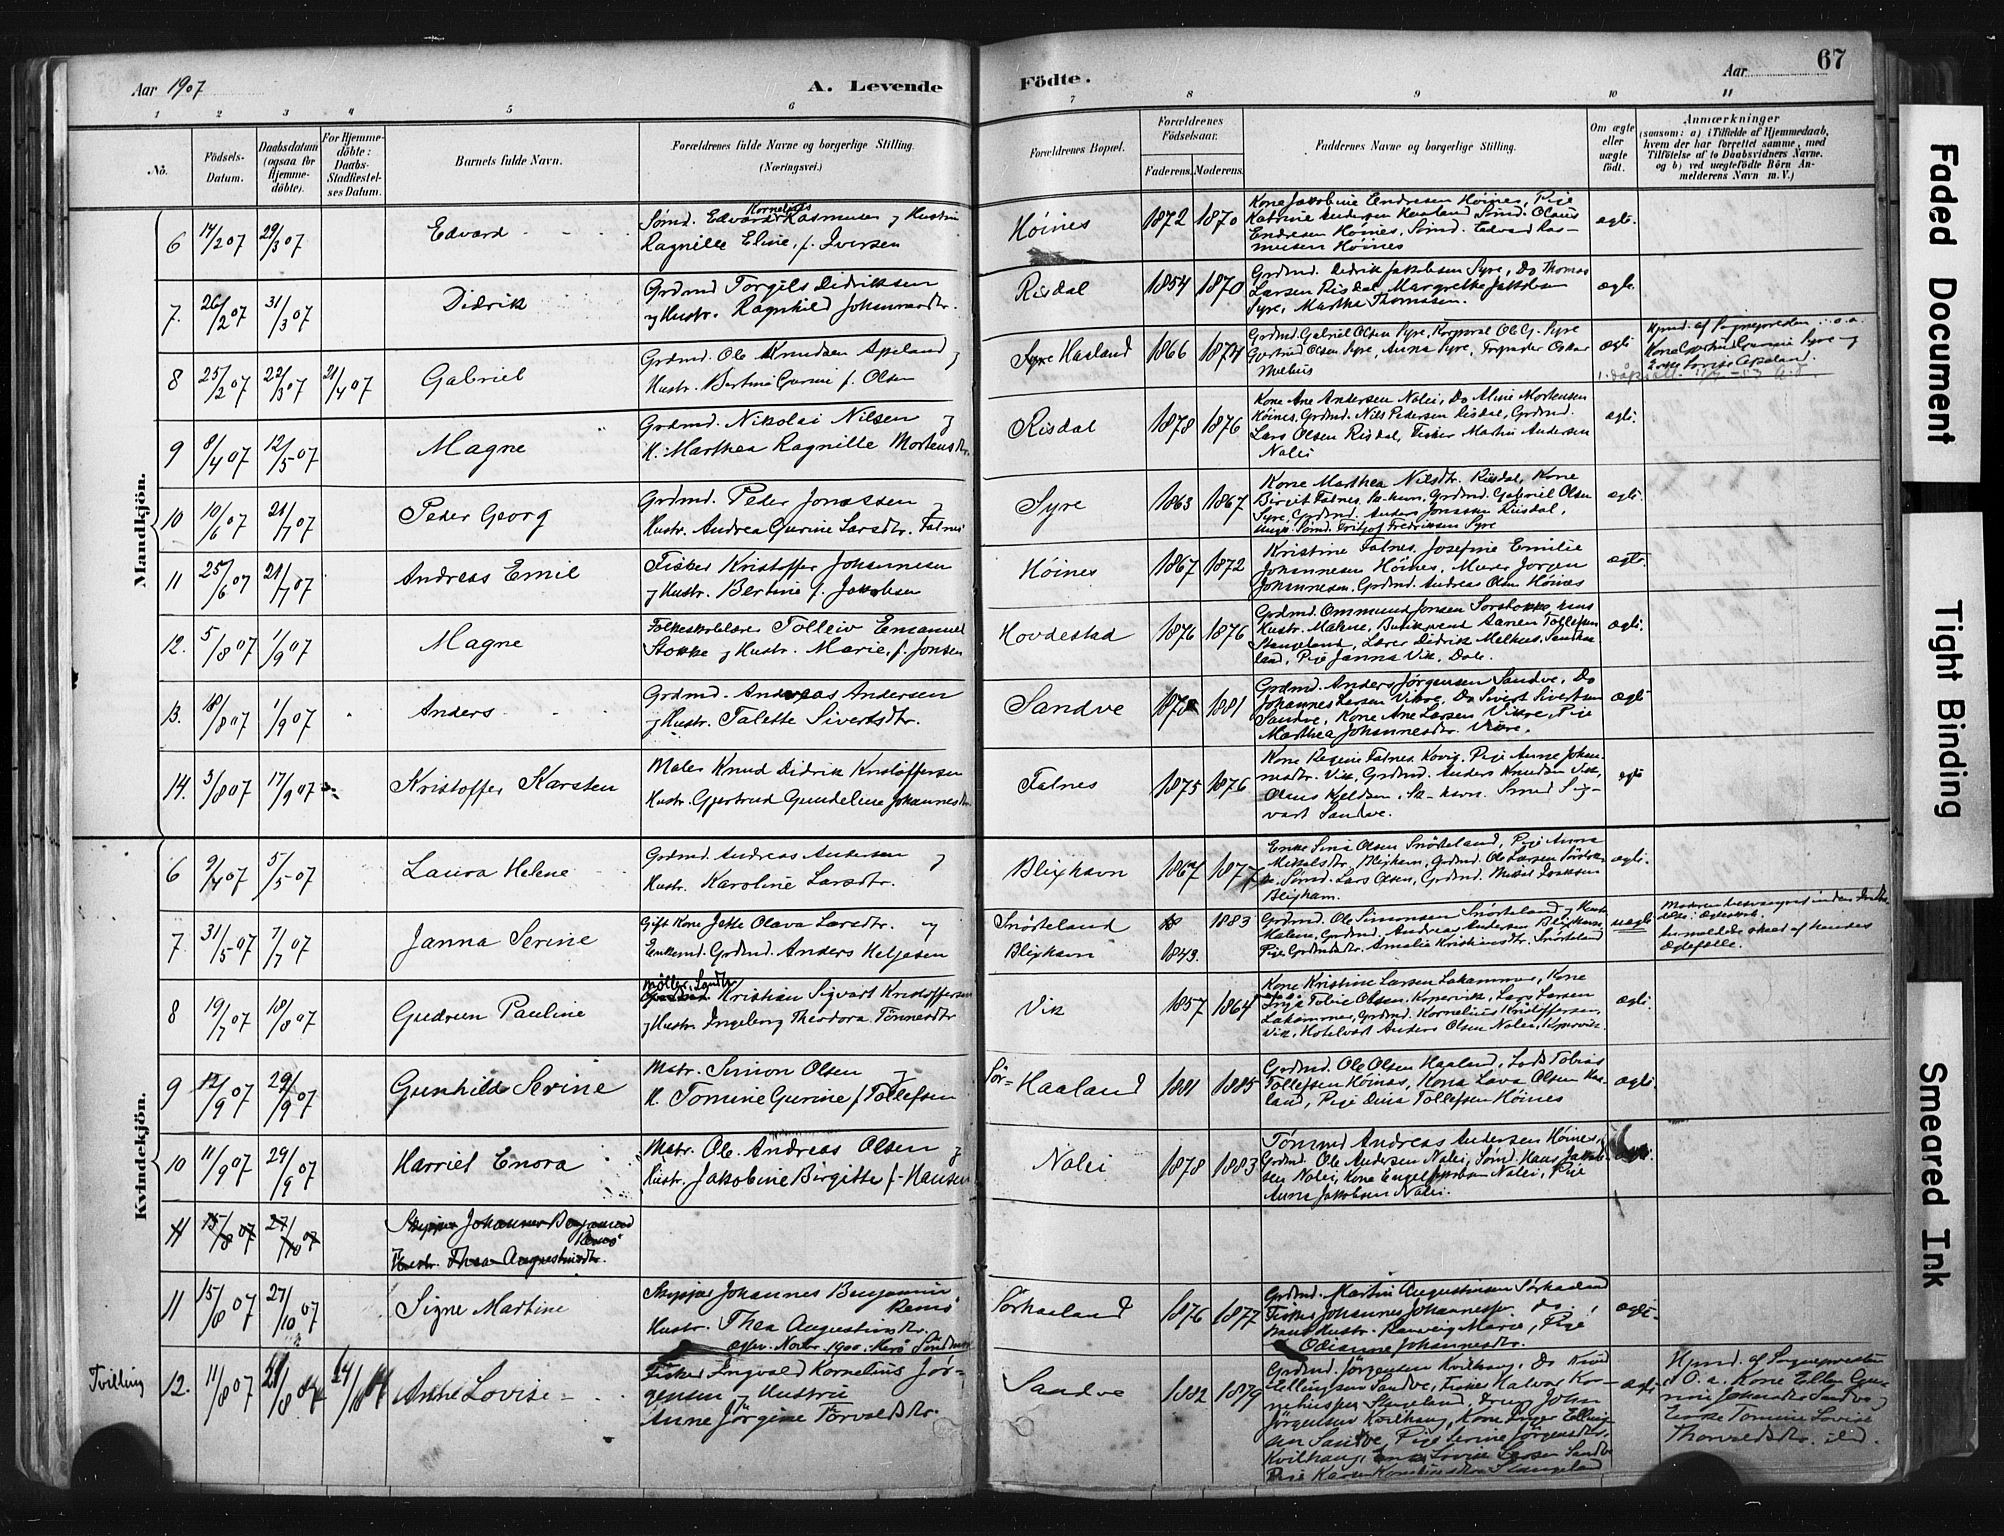 Aar 1907
A. Levende
Födte.
Aar
67
1 2 3 4 5 6 7 8 9 10 11
No.
Födsels-
Datum.
Daabsdatum
(ogsaa for
Hjemme-
döbte).
For Hjemme-
döbte:
Daabs-
Stadfæstel-
ses Datum.
Barnets fulde Navn.
Forældrenes fulde Navne og borgerlige Stilling.
(Næringsvei.)
Forældrenes Bopæl.
Forældrenes
Födselsaar.
Faderens. Moderens.
Faddernes Navne og borgerlige Stilling.
Om ægte
eller
uægte
födt.
Anmærkninger
(saasom: a) i Tilfælde af Hjemmedaab,
hvem der har forrettet samme, med
Tilföielse af to Daabsvidners Navne.
og b) ved uægtefödte Börn An-
melderens Navn m. V.)
Mandkjön.
6 14/2 07 29/3 07 Edvard
Sømd. Edvard Kornelius Rasmussen og Hustru
Ragnille Eline, f. Iversen
Høines 1872 1870
Kone Jakobine Endresen Høines, Pige
Endresen Høines, Sømd. Edvard Ras-
mussen Høines
ægte.
7. 26/2 07 31/3 07 Didrik
Grdmd Torgils Didriksen
og Hustr. Ragnhild Johannesdtr.
Risdal 1854 1870
Grdmd. Didrik Jakobsen Syre, Do Thomas
Larsen Risdal, Margrethe Jakobsen
Syre, Martha Thomassen.
ægte.
8 25/2 07 22/3 07 21/4 07 Gabriel
Grdmd. Ole Knudsen Apeland og
Hustr. Bertine Gurine f. Olsen
Syre Haaland 1866 1874
Grdmd. Gabriel Olsen Syre, Korporal Ole G. Syre
Gertrud Olsen Syre, Anna Syre,
ægte
9 8/4 07 12/5 07 Magne
Grdmd. Nikolai Nilsen og
H. Marthea Ragnille Mortensdtr.
Risdal 1878 1876
Kone Ane Andersen Nalei, Do Aline Mortensen
Høines, Grdmd. Nils Pedersen Risdal, Grdmd.
Lars Olsen Risdal, Fisker Martin Andersen
Nalei
ægte.
10 10/6 07 21/7 07 Peder Georg
Grdmd. Peder Jonassen og
Hustr. Andrea Gurine Larsdtr. Falnes
Syre 1863 1867
Kone Marthea Nilsdtr. Risdal, Kone
Birgit Falnes, Grdmd. Gabriel Olsen
Syre, Grdmd. Anders Jonassen Risdal,
Ungk. Sømd. Fritjof Fredriksen Syre
ægte
11 25/6 07 21/7 07 Andreas Emil
Fisker Kristoffer Johannesen
og Hustr. Bertine f. Jakobsen
Høines 1867 1872
Kristine Falnes, Josefine Emilie
Johannesen Høines, Murer Jørgen
Johannesen, Grdmd. Andreas Olsen Høines
ægte.
12. 5/8 07 1/9 07 Magne
Folkeskolelærer Tolleiv Emanuel
Stokke og Hustr. Marie, f. Jonsen
Hovdestad 1876 1876
Grdmd. Ommund Jonsen Sørstokke, hans
Hustr. Malene,
Stangeland, Lærer Didrik
land, Pige Janna Vik, Dale.
ægte.
13. 18/8 07 1/9 07 Anders
Grdmd. Andreas Andersen
og Hustr. Talette Sivertsdtr.
Sandve 1870 1881
Grdmd. Anders Jørgensen Sandve, Do
Johannes Larsen Vikre, Do Sivert Sivertsen
Sandve, Kone Ane Larsen Vikre, Pige
Marthea Johannesdtr. Vikre.
ægte
14. 3/8 07 17/9 07 Kristoffer Karsten
Maler Knud Didrik Kristoffersen
Hustr. Gjertrud Gundeline Johannesdtr
Falnes 1875 1876
Kone Regine Falnes, Pige Anne Johan-
nesdtr. Vik, Grdmd. Anders Knudsen Vik,
Olaus Kjeldsen, Smed Sig-
vart Sandve.
ægte
Kvindekjön.
6 9/4 07 5/5 07 Laura Helene
Grdmd. Andreas Andersen og
Hustr. Karoline Larsdtr.
Bleghavn 1867 1877
Enke Sina Olsen Snørteland, Pige Anna
Sømd. Lars Olsen, Grdmd. Mikal Isaksen
ægte.
7. 31/5 07 7/7 07 Janna Serine
Gift Kone Jette Olava Larsdtr. og
Enkemd. Grdmd. Anders Helgesen
Snørteland 1883
Bleghavn 1843.
Grdmd. Ole Simonsen Snørteland og Hustr
Malene, Grdmd. Andreas Andersen
Amalie Kristiansdtr. Snørteland
uægte
Ægtefælle.
8 19/7 07 18/8 07 Gudrun Pauline
Møller, Landh.
Kristian Sigvart Kristoffersen
og Hustr. Ingeborg Theodora Tønnesdtr
Vik 1857 1864
Kone Kristine Larsen Lahammer, Kone
Inga Tobie Olsen, Kopervik, Lars Larsen
Lahammer, Grdmd. Kornelius Kristoffersen,
Vik, Hotelvært Anders Olsen Nalei, Kopervik.
ægte.
9 12/9 07 29/9 07 Gunhild Serine
Matr. Simon Olsen og
H. Tomine Gurine f. Tollefsen
Sør-Haaland 1881 1885
Grdmd. Ole Olsen Haaland, Lods Tobias
Tollefsen Høines, Kona Lava Olsen Haa-
land, Pige Dina Tollefsen Høines
ægte.
10 11/9 07 29/9 07 Harriet Enora
Matr. Ole Andreas Olsen og
Hustr. Jakobine Birgitte f. Hansen
Nalei 1878 1883
Tømmd Andreas Andersen Høines,
Grdmd. Ole Andersen Nalei, Sømd. Hans Jakob-
sen Nalei, Kone Engel Jakobsen Nalei, Pige
Anna Jakobsen Nalei.
11 15/8 07 27/10 07 Skipper Johannes Benjamin
Remø
Hustr. Thea Augustinsdtr.
11 15/8 07 27/10 07 Signe Martine
Skipper Johannes Benjamin
Remø
Hustr. Thea Augustinsdtr.
Sørhaaland 1876 1877
Grdmd. Martin Augustinsen Sørhaaland
Fisker Johannes Johannessen do,
hans Hustr. Rannveig Marie, Pige
Odianne Johannesdtr.
ægte.
Tvilling 12. 11/8 07 14/10 07 Anne Lovise
Fisker Ingvald Kornelius Jør-
gensen og Hustru
Anne Jørgine Torvaldsdtr.
Sandve 1882 1879
Grdmd. Jørgensen Kvilhaug, Do Knud
Ellingsen Sandve, Fisker Halvor Kor-
neliussen Stangeland, Dreng John
Jørgensen Kvilhaug, Kone Inger Elling-
sen Sandve, Pige Serine Jørgensdtr.
Kvilhaug, Enke Lovise Larsen Sandve
Pige Karen Korneliusdtr. Stangeland
ægte
Hjmd. af Sognepresten
i O. a. Kone Ellen Gu-
rine Johnsdtr Sandve og
Enke Tomine Lovise
Thorvaldsdtr. ibd.
Faded Document
Tight Binding
Smeared Ink